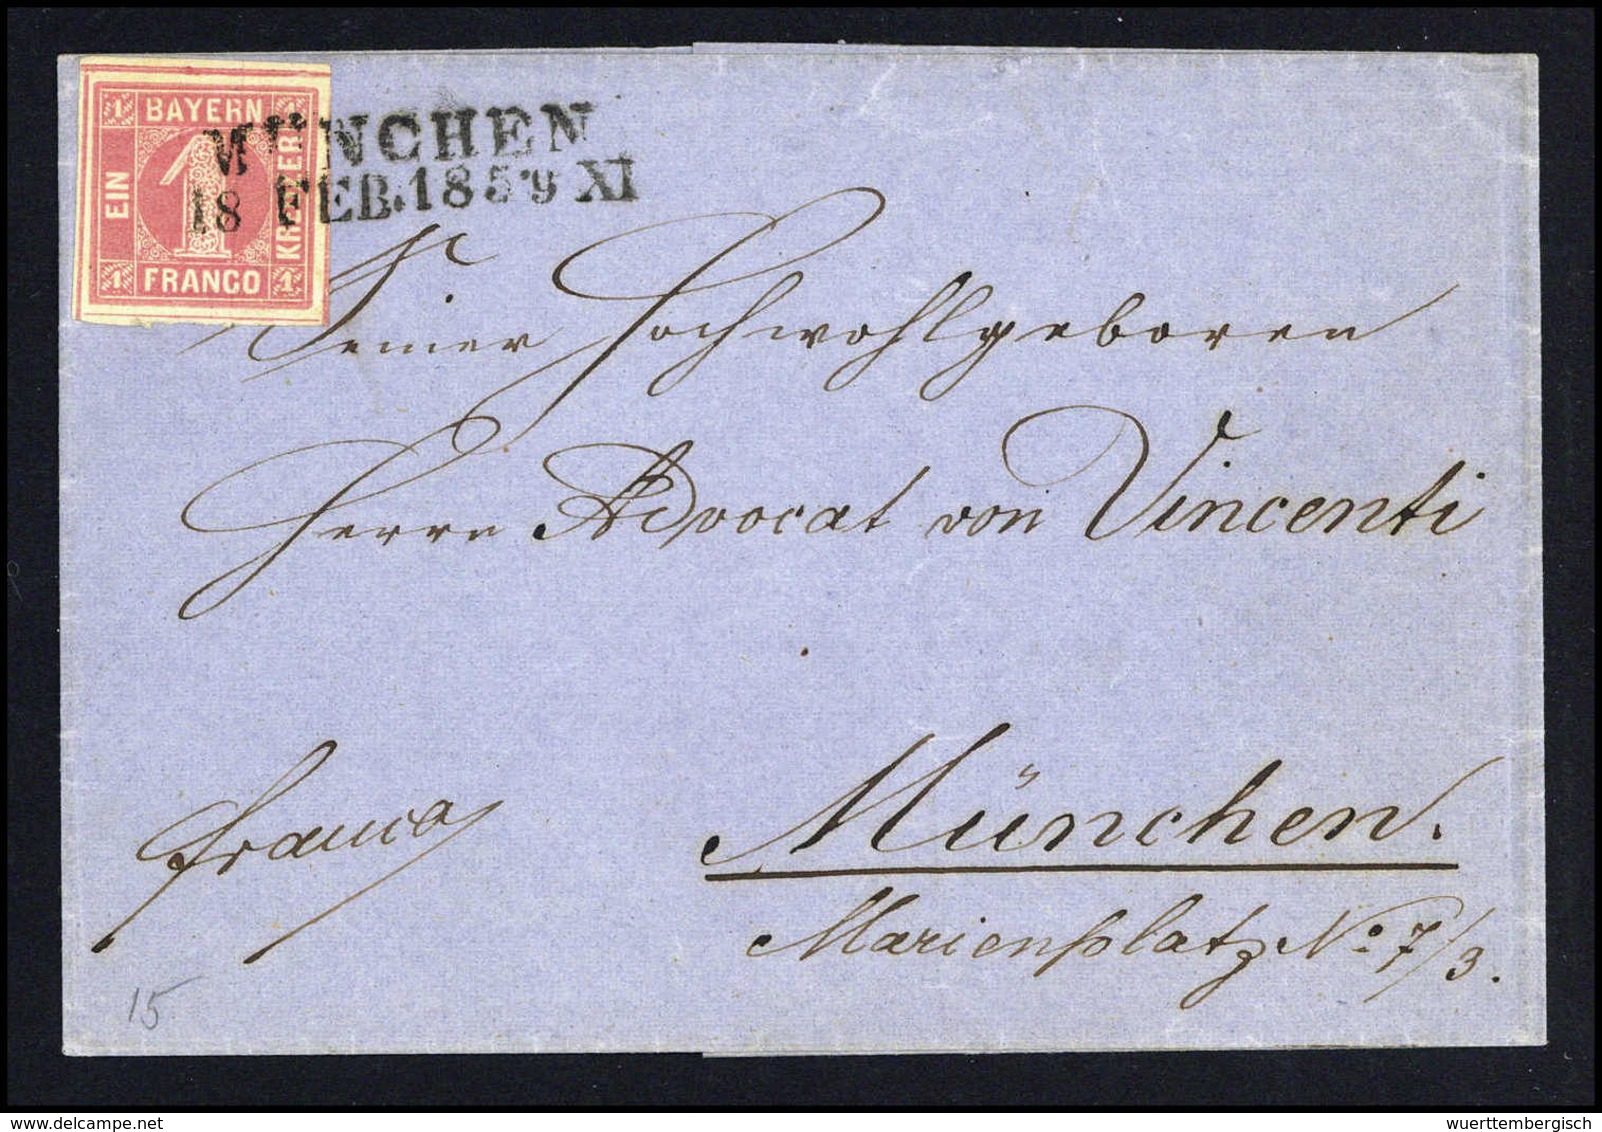 1 BAYERN 1
EIN 1 KREUZER
1 FRANCO 1
MÜNCHEN
18 FEB. 1859 XI
Seiner Hochwohlgeboren
Herrn Advocat von Vincenti
franco
München.
Marienplatz No 7/3.
15
www.delcampe.net
wuerttembergisch